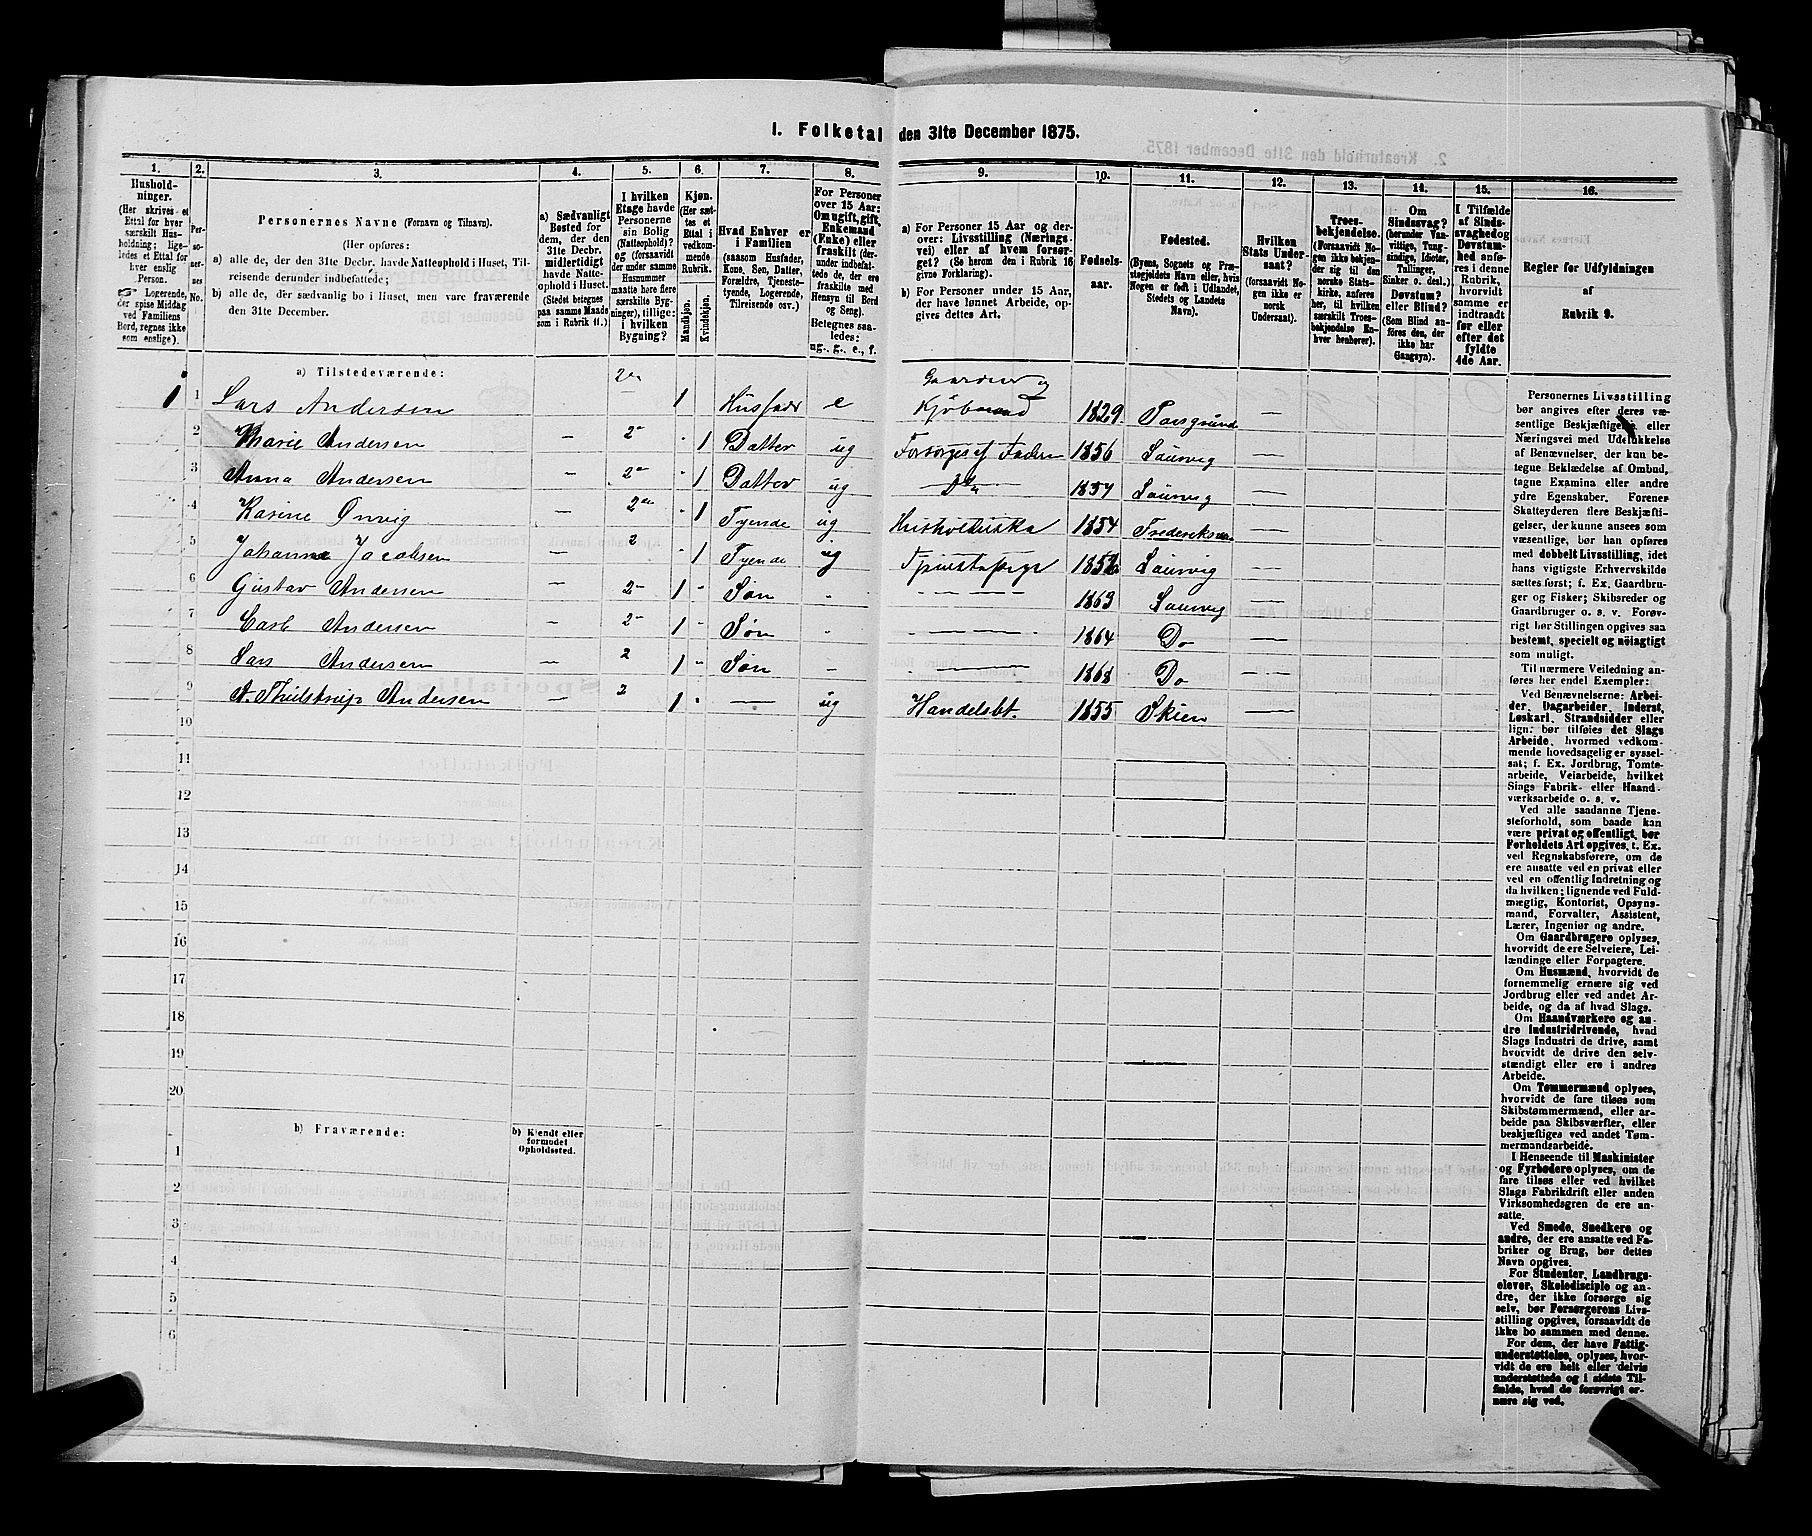 1. Folketal den 31te December 1875.
1. 2. 3. 4. 5. 6. 7. 8. 9. 10. 11. 12. 13. 14. 15. 16.
Hushold-
ninger.
(Her skrives et
Ettal for hver
særskilt Hus-
holdning; lige-
ledes et Ettal for
hver enslig
Person.
Logerende,
der spise Middag
ved Familiens
Bord, regnes ikke
som enslige).
Per-
so-
ner-
nes
No.
Personernes Navne (Fornavn og Tilnavn).
(Her opføres:
a) alle de, der den 31te Decbr. havde Natteophold i Huset, Til-
reisende derunder indbefattede;
b) alle de, der sædvanlig bo i Huset, men vare fraværende
den 31te December.
a) Sædvanligt
Bosted for
dem, der den
31te Decbr.
midlertidigt
havde Natte-
ophold i Huset.
(Stedet betegnes
paa samme Maade
som i Rubrik 11.)
I hvilken
Etage havde
Personerne
sin Bolig
(Natteophold)?
og (forsaavidt
der under samme
Husnummer
maatte høre flere
særskilte Byg-
ninger), tillige:
i hvilken
Bygning?
Kjøn.
(Her sæt-
tes et
Ettal i
vedkom-
mende
Rubrik.
Mandkjøn.
Kvindekjøn.
Hvad Enhver er
i Familien
(saasom Husfader,
Kone, Søn, Datter,
Forældre, Tjeneste-
tyende, Logerende,
Tilreisende osv.)
For Personer
over 15 Aar:
Om ugift, gift,
Enkemand
(Enke) eller
fraskilt (der-
under indbefat-
tede de, der ere
fraskilte med
Hensyn til Bord
og Seng).
Betegnes saa-
ledes:
ug., g., e., f.
a) For Personer 15 Aar og der-
over: Livsstilling (Nærings-
vei) eller af hvem forsør-
get? (Se herom den i Rubrik 16
givne Forklaring).
b) For Personer under 15 Aar,
der have lønnet Arbeide, op-
gives dettes Art.
Fødsels-
aar.
Fødested.
(Byens, Sognets og Præ-
stegjeldets Navn eller, hvis
Nogen er født i Udlandet,
Stedets og Landets
Navn).
Hvilken
Stats Under-
saat?
(forsaavidt No-
gen ikke er
norsk
Undersaat).
Troes-
bekjendelse.
(Forsaavidt No-
gen ikke bekjen-
der sig til den
norske Stats-
kirke, anføres
her, til hvilken
særskilt Troes-
bekjendelse En-
hver henhører).
Om
Sindssvag?
(herunder Van-
vittige, Tung-
sindige, Idioter,
Tullinger,
Sinker o. desl.)
Døvstum?
eller Blind?
(Som Blind an-
føres den, der
ikke har
Gangsyn).
I Tilfælde
af Sinds-
svaghed og
Døvstum-
hed anfø-
res i denne
Rubrik,
hvorvidt
samme er
indtraadt
før eller
efter det
fyldte
4de Aar.
Regler for Udfyldningen
af
Rubrik 9.
a) Tilstedeværende:
1 1 Lars Andersen 2en 1 Husfader e Gaardeier og Kjøbmand 1829 Porsgrund —
2 Marie Andersen — 2 - 1 Datter ug Forsørges af Faderen 1856 Laurvig —
3 Anna Andersen — 2 - 1 Datter ug Do 1857 Laurvig —
4 Karine Onvig — 2en - 1 Tyende ug Husholderske 1854 —
5 Johanne Jacobsen — 2 - 1 Tyende ug Laurvig —
6 Gustav Andersen — 2 1 - Søn - — 1863 Laurvig —
7 Carl Andersen — 2 1 - Søn - — 1864 Do —
8 Lars Andersen — 2 1 - Søn - — 1868 Do —
9 A. Thulstrup Andersen — 2 1 - — ug Handelsbt. 1855 Skien —
10
11
12
13
14
15
16
17
18
19
20
b) Fraværende:
b) Kjendt eller
formodet
Opholdssted.
1
2
3
4
5
6
Personernes Livsstilling
bør angives efter deres væ-
sentlige Beskjæftigelse eller
Næringsvei med Udelukkelse
af Benævnelser, der kun be-
tegne Beklædelse af Ombud,
tagne Examina eller andre
ydre Egenskaber. Forener
Skatteyderen flere Beskjæfti-
gelser, der kunne ansees som
væsentlige, bør han opføres
med dobbelt Livsstilling, idet
hans vigtigste Erhvervskilde
sættes først; f. Ex. Gaardbru-
ger og Fisker; Skibsreder og
Gaardbruger o. s. v. Forøv-
rigt bør Stillingen opgives saa
bestemt, specielt og nøiagtigt
som muligt.
Til nærmere Veiledning an-
føres her endel Exempler:
Ved Benævnelserne: Arbei-
der, Dagarbeider, Inderst,
Løskarl, Strandsidder eller
lign. bør tilføies det Slags
Arbeide, hvormed vedkom-
mende hovedsagelig er syssel-
sat; f. Ex. Jordbrug, Tomte-
arbeide, Veiarbeide, hvilket
Slags Fabrik- eller Haand-
værksarbeide o. s. v.
Ved alle saadanne Tjene-
steforhold, som baade kan
være privat og offentligt, bør
Forholdets Art opgives, t. Ex.
ved Regnskabsførere, om de
ere ansatte ved en privat eller
ved en offentlig Indretning og
da hvilken; lignende ved Fuld-
mægtig, Kontorist, Opsyns-
mand, Forvalter, Assistent,
Lærer, Ingeniør og andre.
Om Gaardbrugere oplyses,
hvorvidt de ere Selveiere, Lei-
lændinge eller Forpagtere.
Om Husmænd, hvorvidt de
fornemmelig ernære sig ved
Jordbrug eller ved andet Ar-
beide, og da af hvad Slags.
Om Haandværkere og an-
dre Industridrivende, hvad
Slags Industri de drive, samt
hvorvidt de drive den selv-
stændigt eller ere i andres
Arbeide.
Om Tømmermænd oplyses,
hvorvidt de fare tilsøs som
Skibstømmermænd, eller ar-
beide paa Skibsværfter, eller
beskjæftiges ved andet Tøm-
mermandsarbeide.
I Henseende til Maskinister
og Fyrbødere oplyses, om de
fare tilsøs eller ved hvilket
Slags Fabrikdrift eller anden
Virksomhedsgren de ere an-
satte.
Ved Smede, Snedkere og
andre, der ere ansatte ved Fa-
briker og Brug, bør dettes
Navn opgives.
For Studenter, Landbrugs-
elever, Skoledisciple og an-
dre, der ikke forsørge sig
selv, bør Forsørgerens Livs-
stilling opgives, forsaavidt de
ikke bo sammen med denne.
For dem, der have Fattig-
understøttelse, oplyses, hvor-
vidt de ere helt eller delvis
understøttede og i sidste Til-
fælde, hvad de forøvrigt er-
nære sig ved.